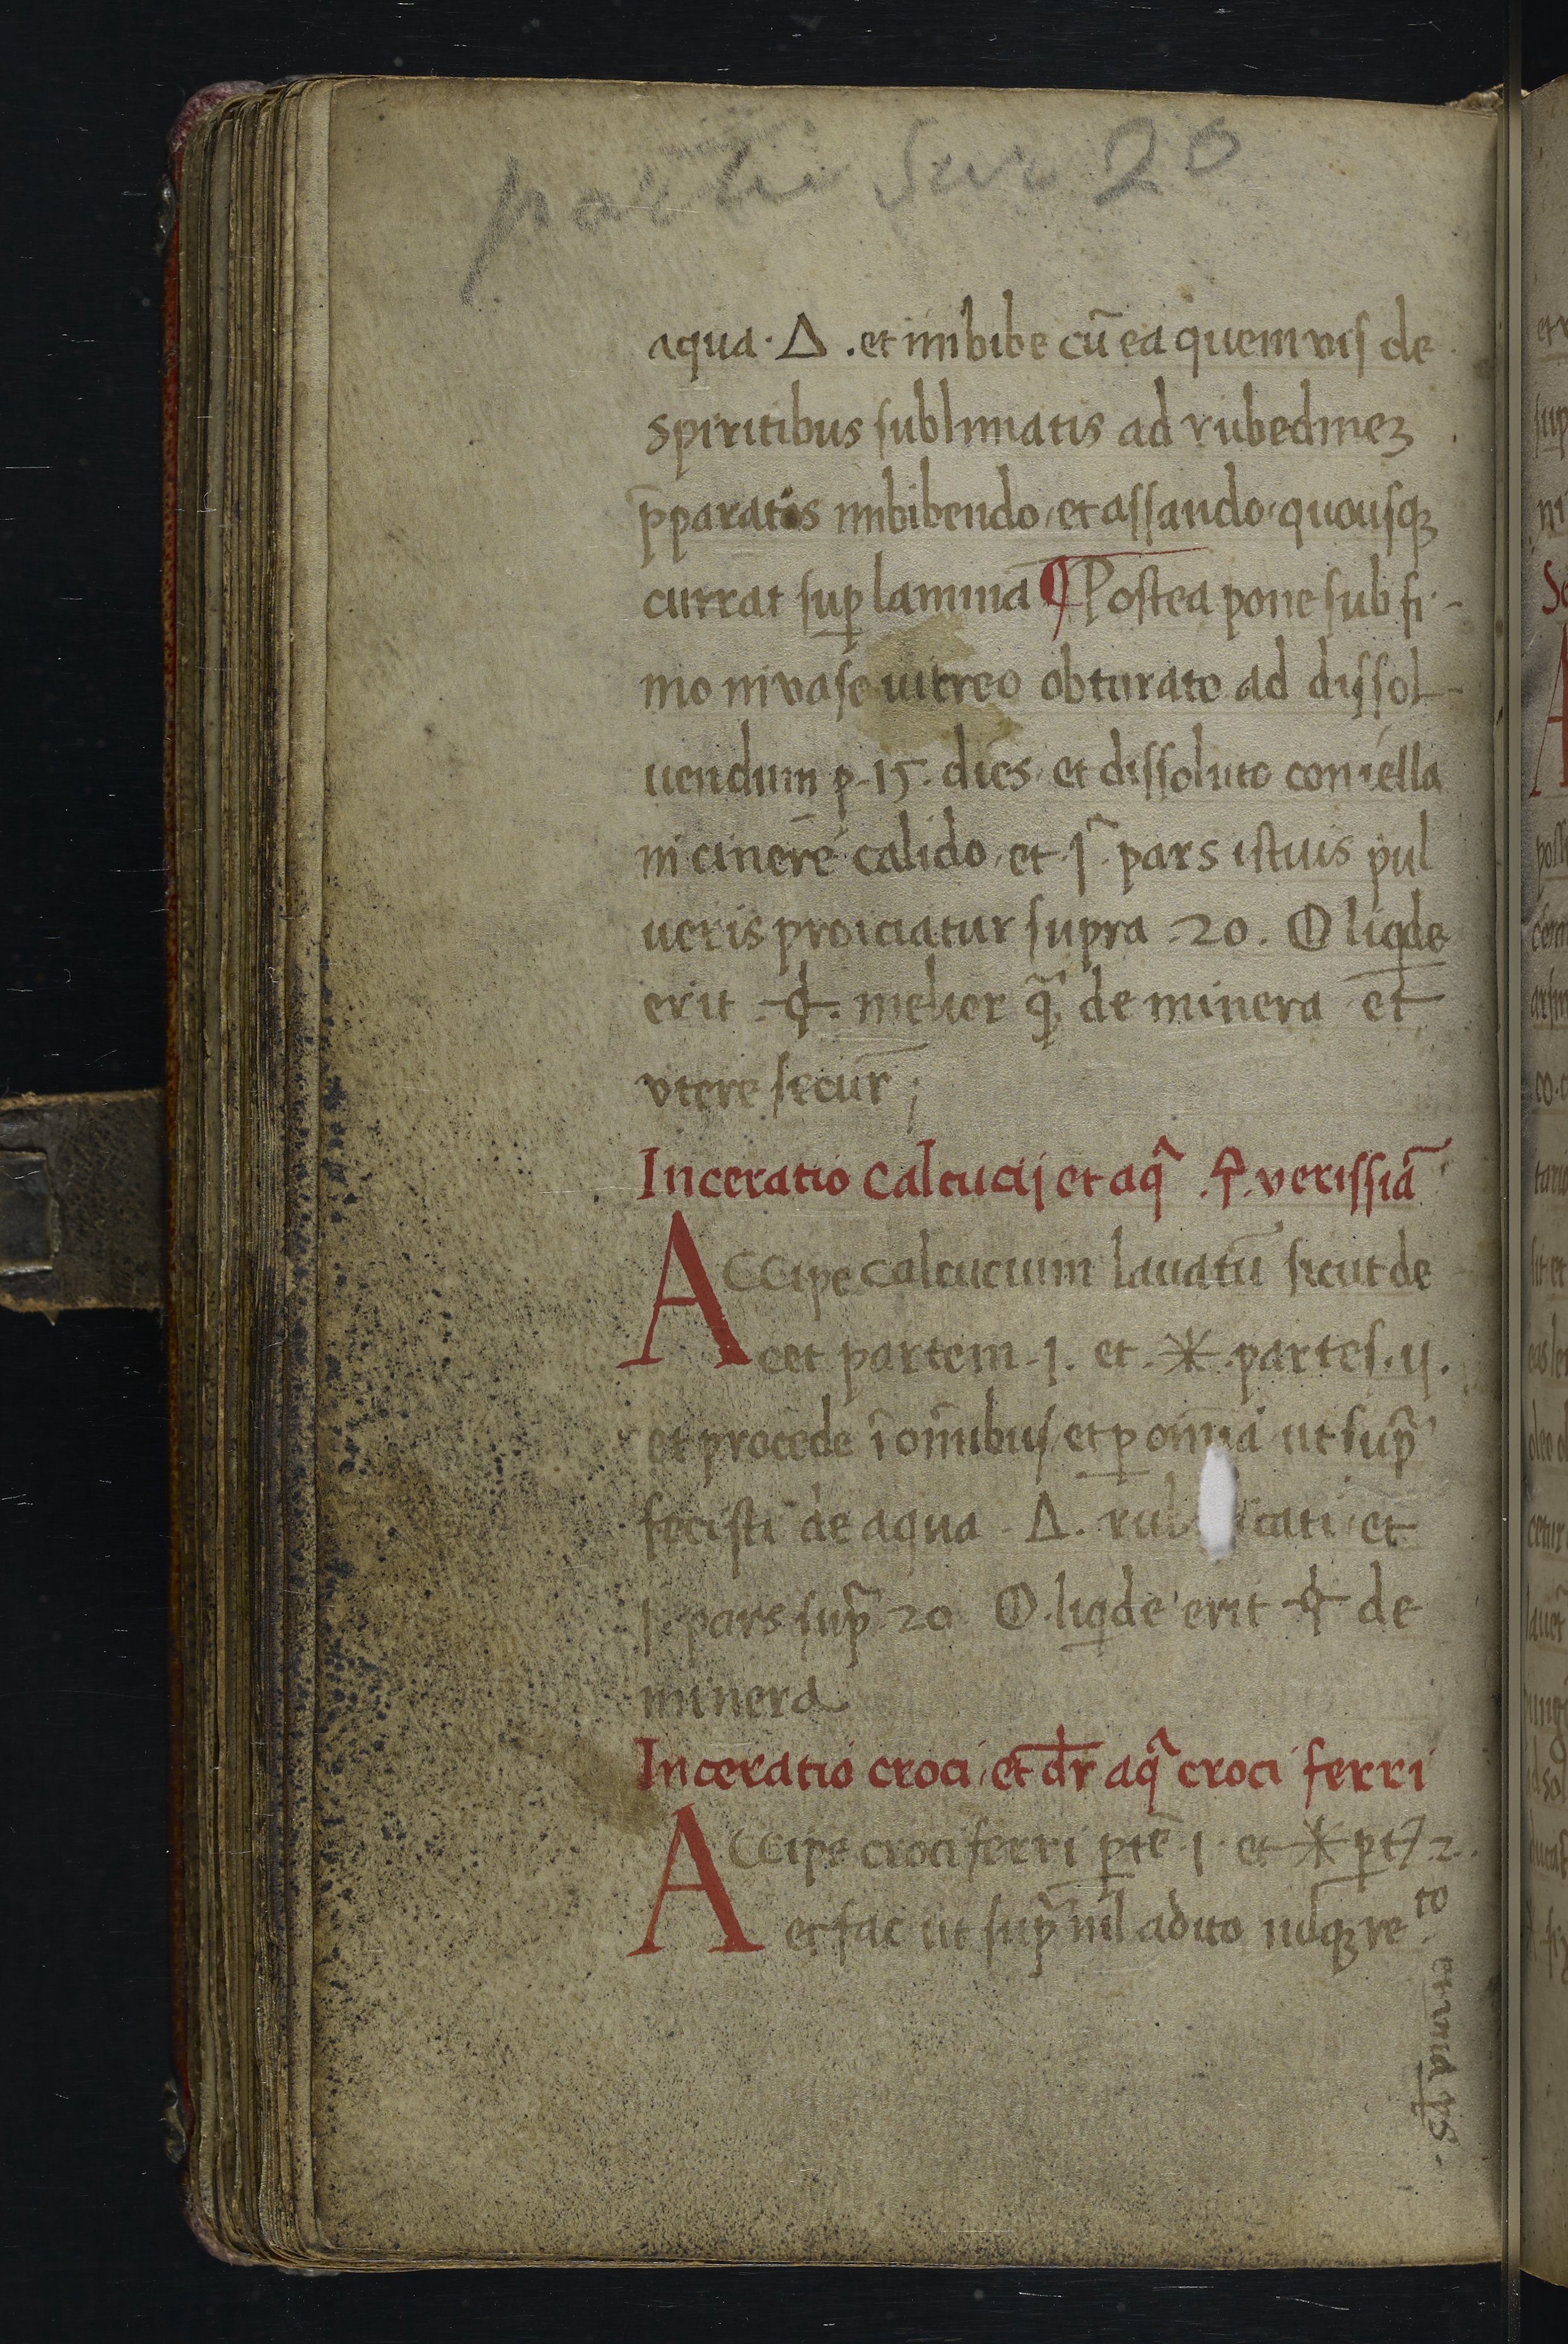 partie sur 20
aqua · Δ . et imbibe cū ea quem vis de
spiritibus sublimatis ad rubedineꝫ
p̄paratis imbibendo, et assando, quousqꝫ
currat suꝑ laminā ¶ Postea pone sub fi-
mo in vase uitreo obturato ad dissol-
uendum ꝑ .15. dies, et dissoluto congella
in cinere calido, et 1ᵃ pars istuis pul
ueris proiciatur supra .20. liqde
erit melior qᷓꝫ de minera et
vtere secur̄;
Inceratio Calcucij et aqᷓ . ♀ . verissiā
ACCipe calcucium lauatū sicut de
cet partem .1. et .✳. partes .ij.
et procede ī om̄ibus, et ꝑ om̄ia ut supᷓ
fecisti de aqua . Δ . rub icati, et
j. pars supᷓ 20 liqde erit de
minera
Inceratio croci, et dr̄ aqᷓ croci ferri
ACCipe croci ferri ꝑtē .1. et ✳ ꝑt .2.
et fac ut supᷓ nil adito re
to